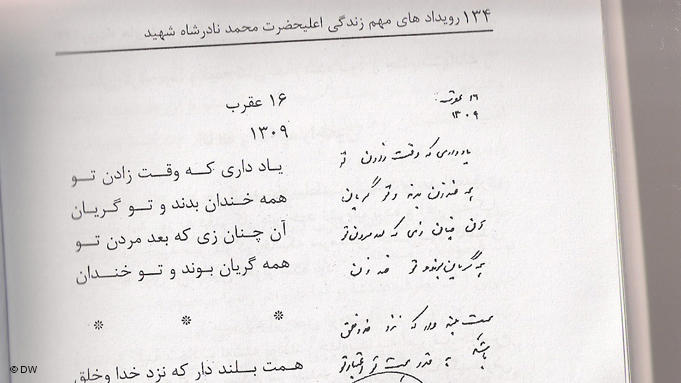 ۱۳۴ رویداد های مهم زندگی اعلیحضرت محمد نادرشاه شهید
۱۶ عقرب
۱۳۰۹
یاد داری که وقت زادن تو
همه خندان بدند و تو گریان
آن چنان زی که بعد مردن تو
همه گریان بوند و تو خندان
* * *
همت بلند دار که نزد خدا وخلق
۱۶ عقرب
۱۳۰۹
یاد داری که وقت زادن تو
همه خندان بدند و تو گریان
آن چنان زی که بعد مردن تو
همه گریان بوند و تو خندان
همت بلند دار که نزد خدا و خلق
باشد به قدر همت تو اعتبار تو
© DW